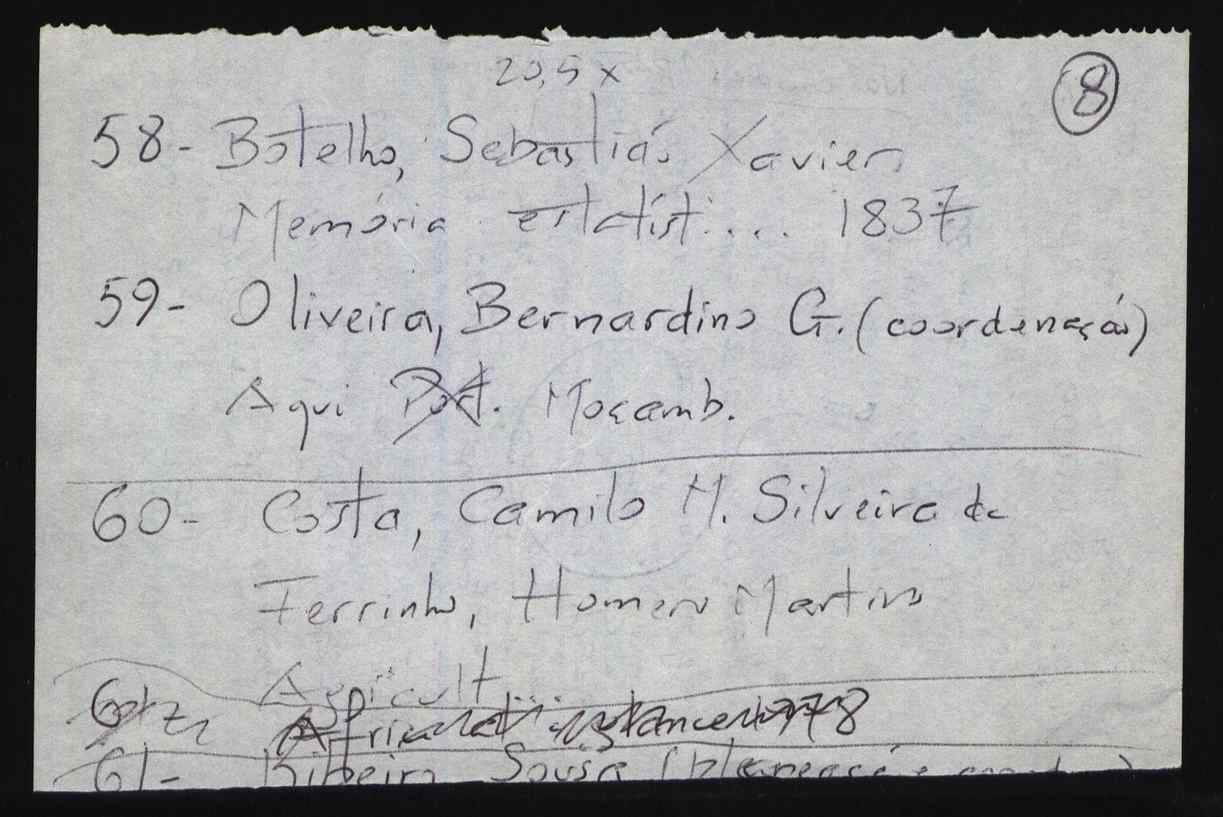 20,5 x
8
58- Botelho, Sebastião Xavier
Memória estatíst.... 1837
59- Oliveira, Bernardino G. (coordenação)
Aqui Port. Moçamb.
60- Costa, Camilo M. Silveira da
Ferrinho, Homero Martins
Agricult...
61- Ribeiro, Sousa